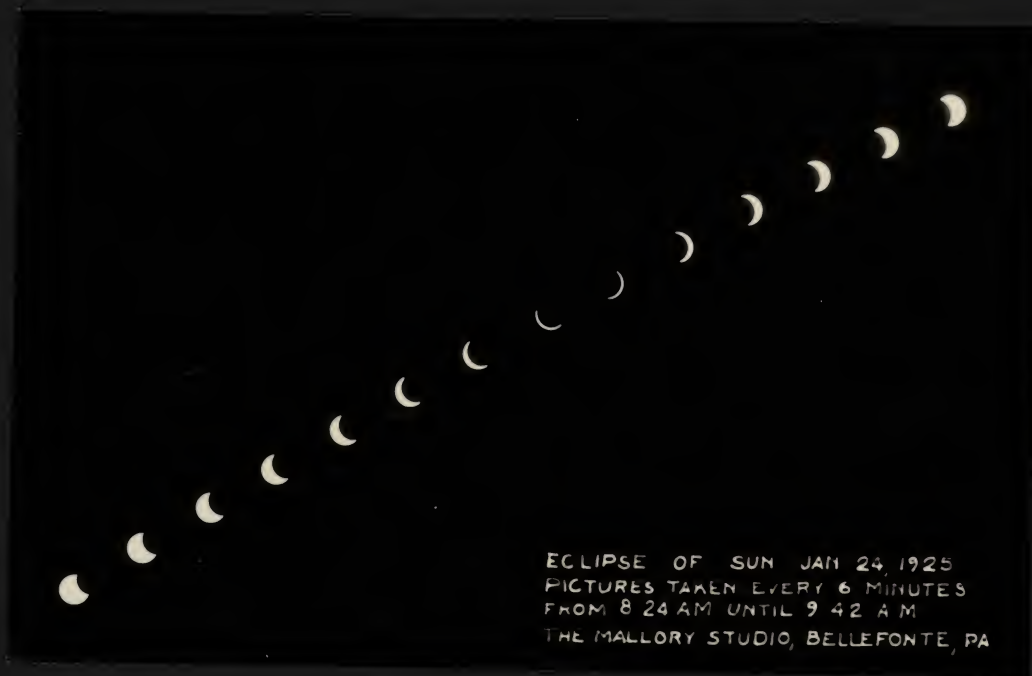 ECLIPSE OF SUN JAN 24, 1925
PICTURES TAKEN EVERY 6 MINUTES
FROM 8 24 AM UNTIL 9 42 A M
THE MALLORY STUDIO, BELLEFONTE, PA